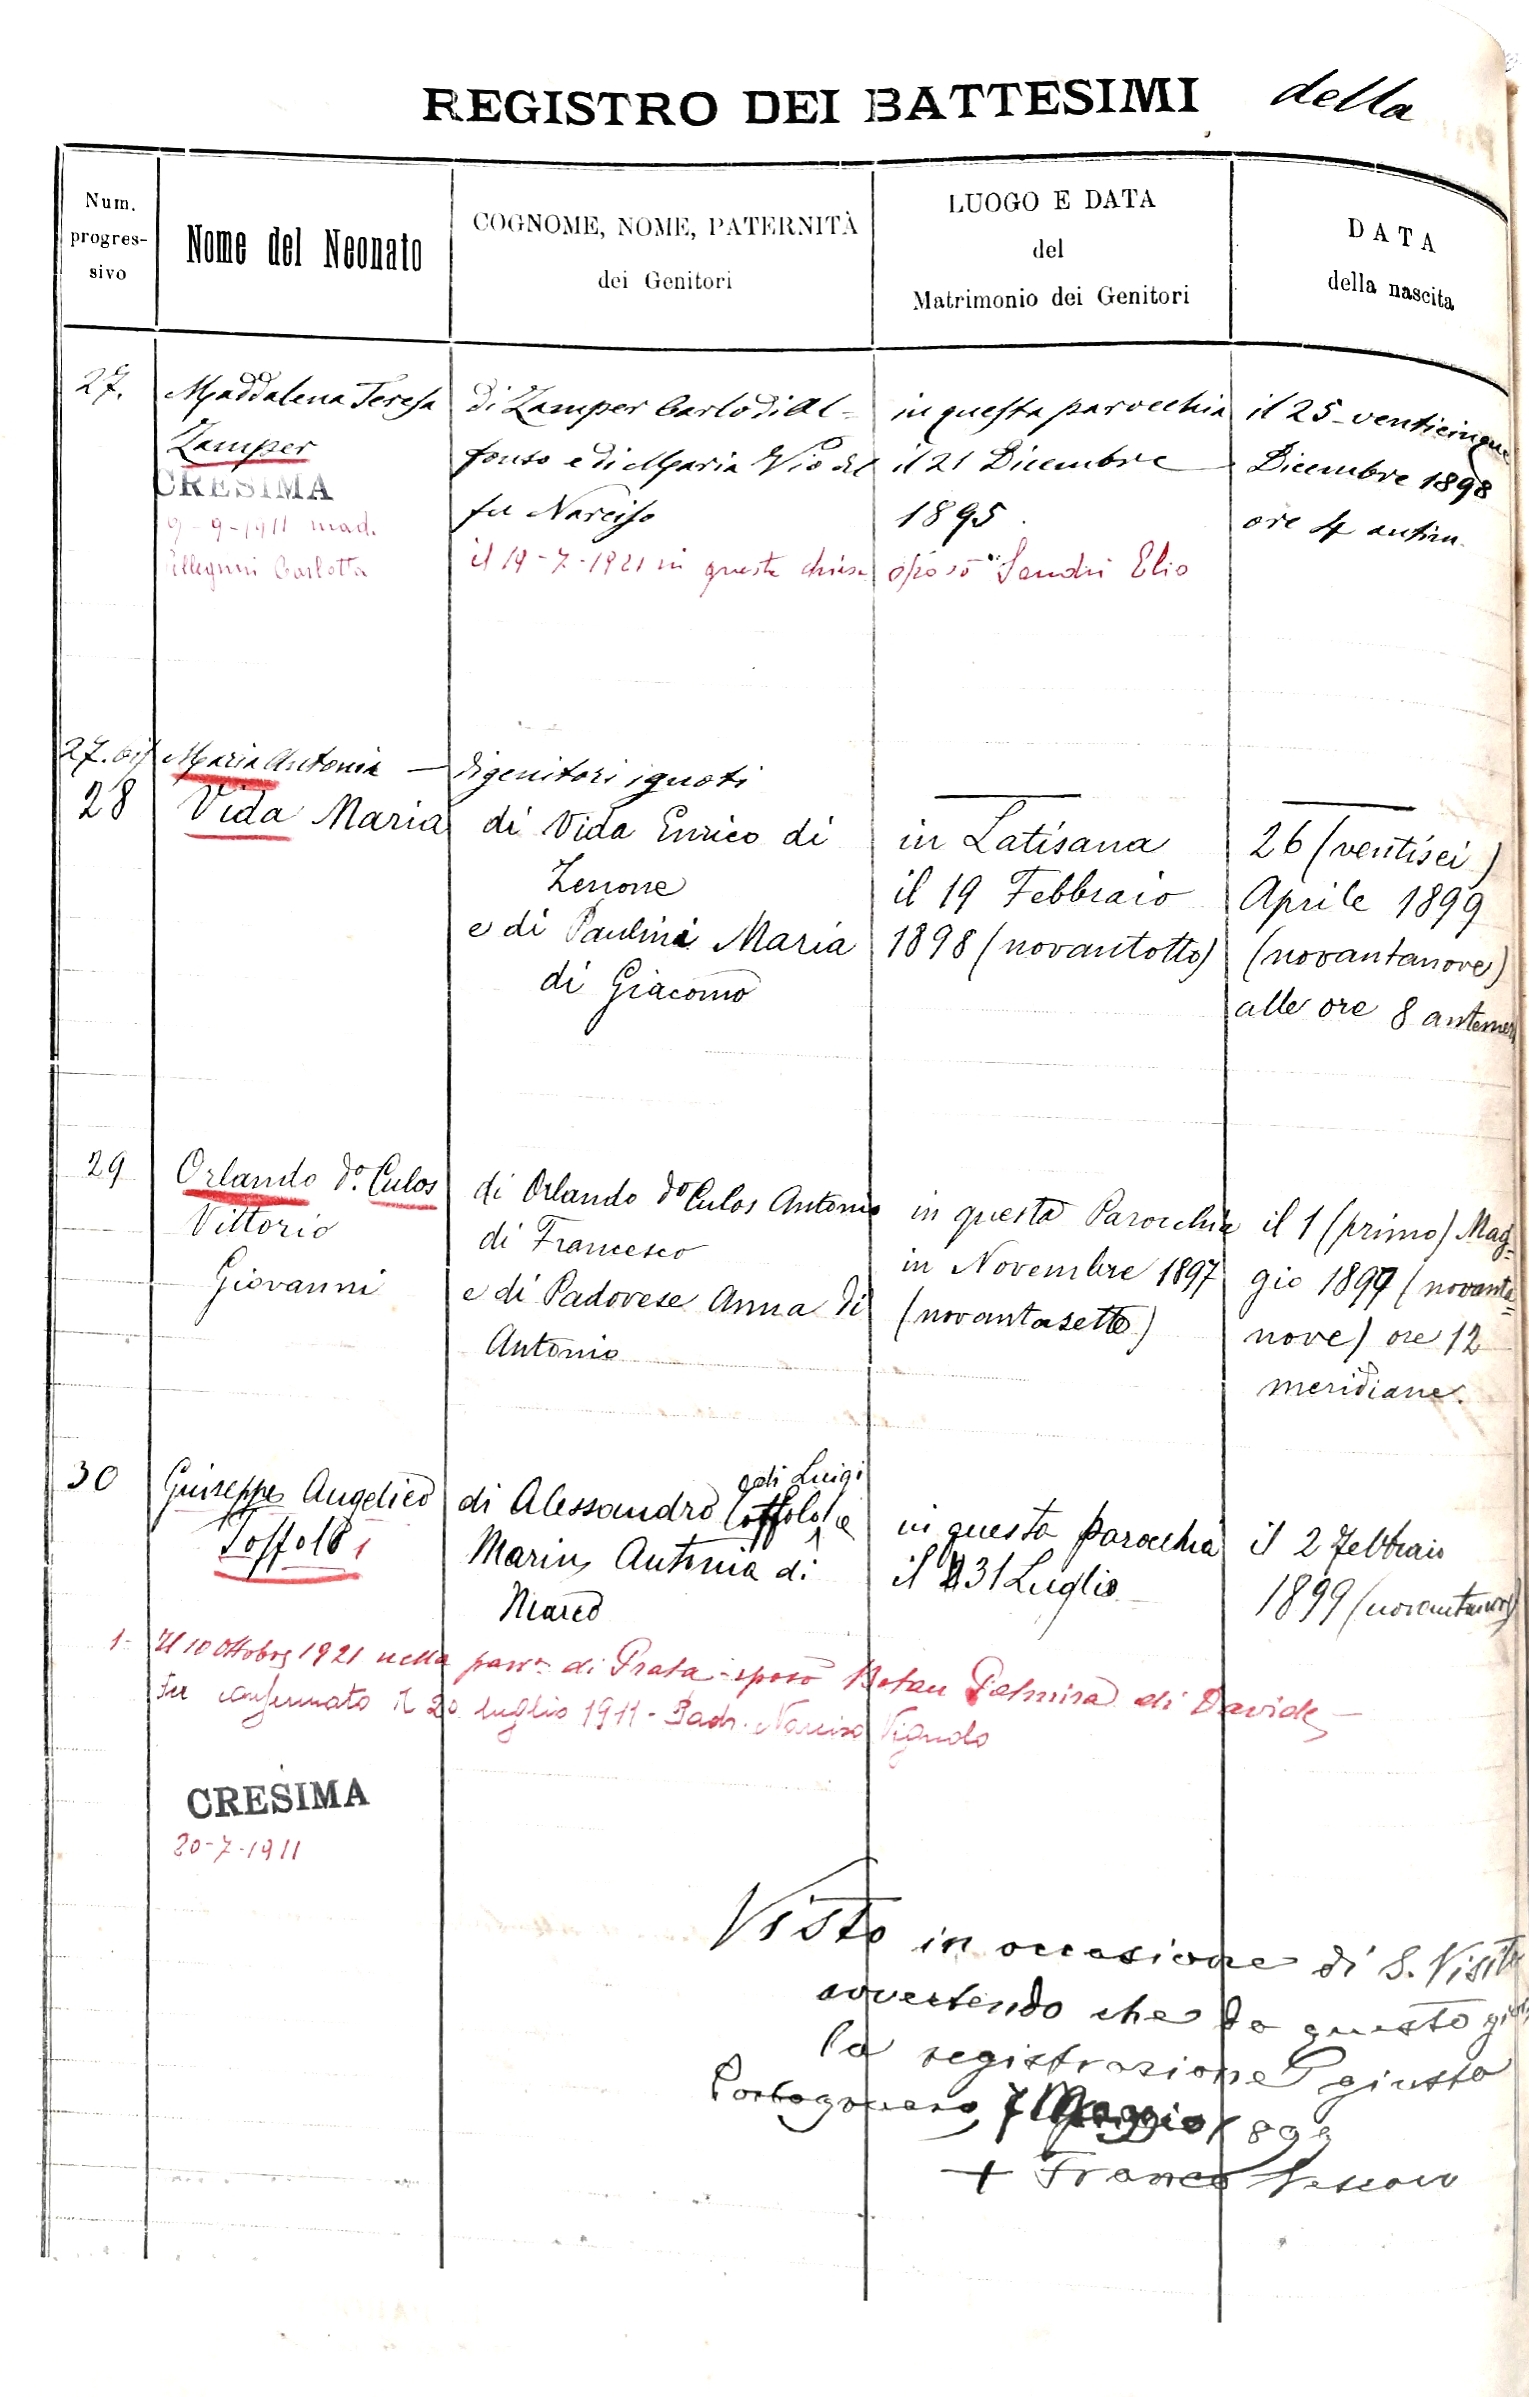 REGISTRO DEI BATTESIMI della
Num.
progres-
sivo
Nome del Neonato
COGNOME, NOME, PATERNITÀ
dei Genitori
LUOGO E DATA
del
Matrimonio dei Genitori
DATA
della nascita
27.
Maddalena Teresa
Zamper
CRESIMA
9-9-1911 mad.
Carlotta
di Zamper Carlo di Al-
fonso e di Maria
fu Narciso
in questa parocchia
il 21 Dicembre
1895
il 25 - venticinque
Dicembre 1898
ore 4 antim.
il 19-7-1921 in questa chiesa sposò Sandri Elio
27. bis
Maria Antonia —
di genitori ignoti
28
Vida Maria
di Vida Enrico di
Zenone
e di Paulini Maria
di Giacomo
in Latisana
il 19 Febbraio
1898 (novantotto)
26 (ventisei)
Aprile 1899
(novantanove)
alle ore 8 antemer
29
Orlando do. Culos
Vittorio
Giovanni
di Orlando do Culos Antonio
di Francesco
e di Padovese Anna di
Antonio
in questa Parocchia
in Novembre 1897
(novantasette)
il 1 (primo) Mag=
gio 1899 (novanta=
nove) ore 12
meridiane.
30
Giuseppe Angelico
Toffolo 1
di Luigi
di Alessandro Toffolo e
Marin Antonia di
Marco
in questa parocchia
il 31 Luglio
il 2 Febbraio
1899 (novantanove)
1- Il 10 Ottobre 1921 nella parr. di Prata sposò Botan Palmira di Davide —
Fu confermato il 20 luglio 1911 - Padr. Narciso Vignola
CRESIMA
20-7-1911
Visto in occasione di S. Visita
avvertendo che da questo
la registrazione giusta
Portogruaro 7 Maggio 1899
+ Franco Vescovo